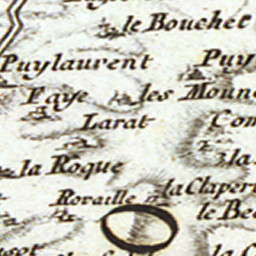 le Bouchet
Puylaurent Puy
Faye les Moun
Larat Com
la Roque la
Rovaille la Claper
le Be
la C